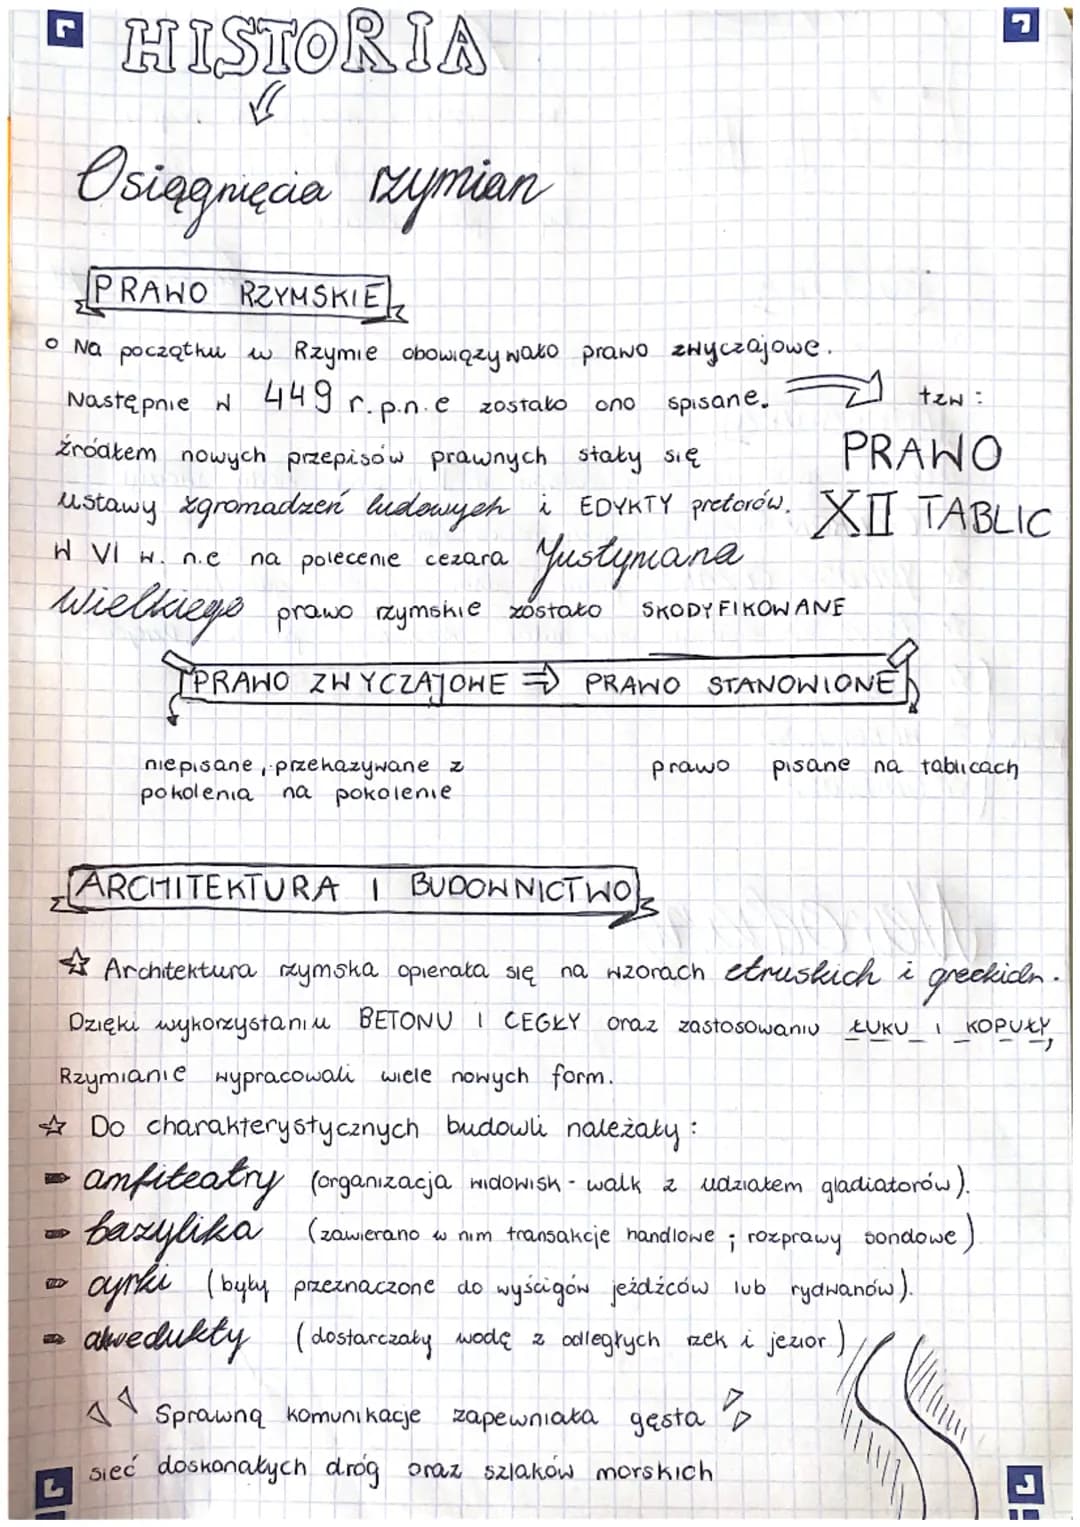 HISTORIA
Osiągnięcia rzymian
PRAWO RZYMSKIE
Na początku w Rzymie obowiązywało prawo zwyczajowe.
Następnie w 449 r.p.n.e zostało ono spisane. tzw:
źródłem nowych przepisów prawnych stały się PRAWO
ustawy zgromadzeń ludowych i EDYKTY pretorów. XII TABLIC
W VI w. n.e na polecenie cezara Justyniana
Wielkiego prawo rzymskie zostało SKODYFIKOWANE
PRAWO ZWYCZAJOWE ⇒ PRAWO STANOWIONE
niepisane, przekazywane z prawo pisane na tablicach
pokolenia na pokolenie
ARCHITEKTURA I BUDOWNICTWO
Architektura rzymska opierała się na wzorach etruskich i greckich.
Dzięki wykorzystaniu BETONU I CEGŁY oraz zastosowaniu ŁUKU I KOPUŁY,
Rzymianie wypracowali wiele nowych form.
Do charakterystycznych budowli należały:
amfiteatry (organizacja widowisk - walk z udziałem gladiatorów).
bazylika (zawierano w nim transakcje handlowe ; rozprawy sondowe)
cyrki (były przeznaczone do wyścigów jeźdźców lub rydwanów).
akwedukty (dostarczały wodę z odległych rzek i jezior)
Sprawną komunikacje zapewniała gęsta
sieć doskonałych dróg oraz szlaków morskich